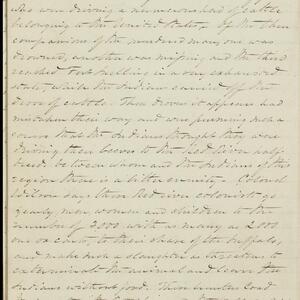 who were driving a numerous herd of cattle
belonging to the United States. Of the three
companions of the murdered man, one was
drowned, another was missing and the third
reached Fort Snelling in a very exhausted
state, while the Indians carried off the
drove of cattle. These drovers it appears had
mistaken their way and were pursuing such a
course that the Indians thought they were
driving their beeves to the Red River half
breeds between whom and the Indians of this
region there is a bitter enmity. Colonel
Wilson says these Red river colonists go
yearly men women and children to the
number of 3000 with as many as 2000
one ox carts to their chase of the buffalo,
and make such a slaughter as threatens to
exterminate the animal and leave the
Indians without food. These hunters load